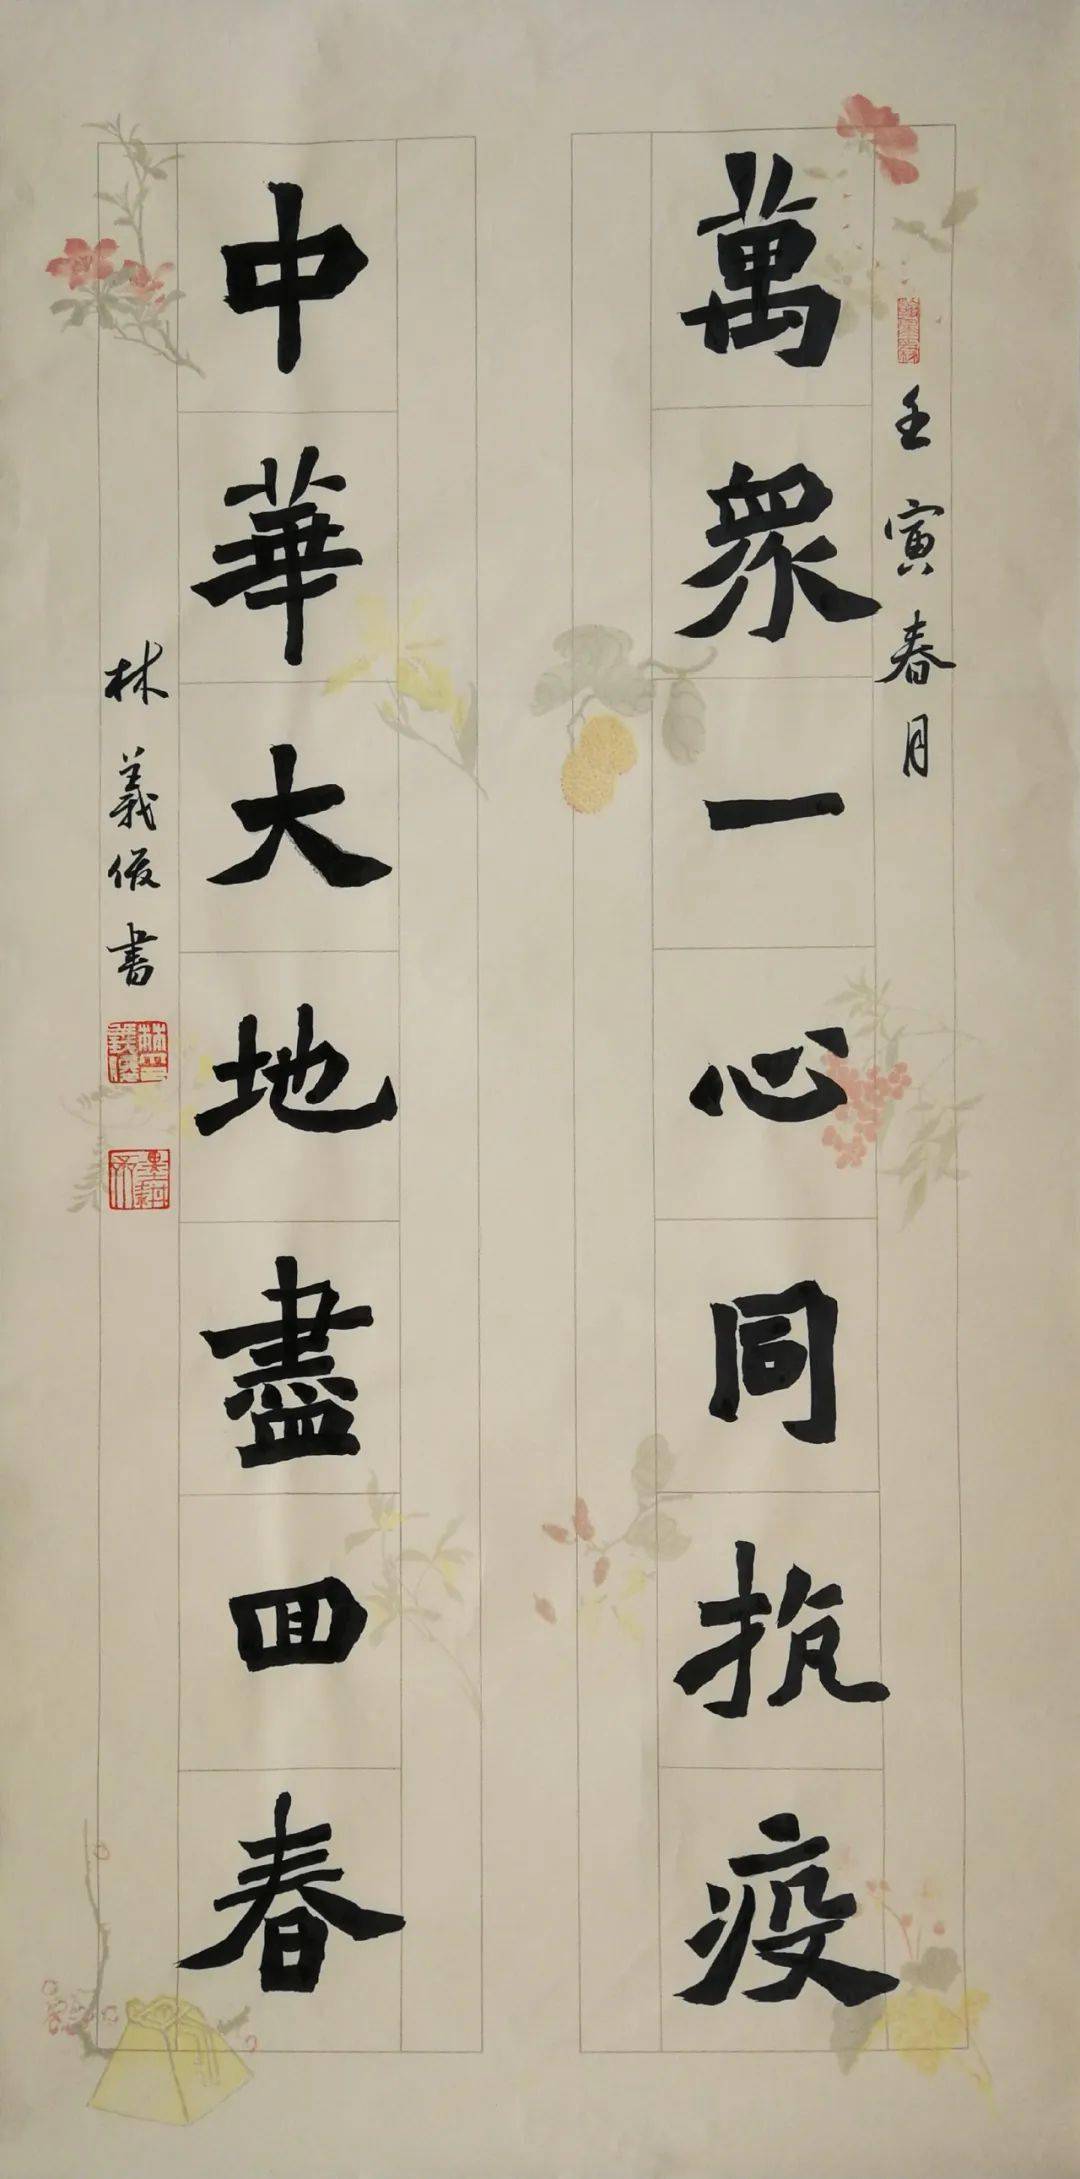 壬寅春月
萬眾一心同抗疫
中華大地盡回春
林義俊書